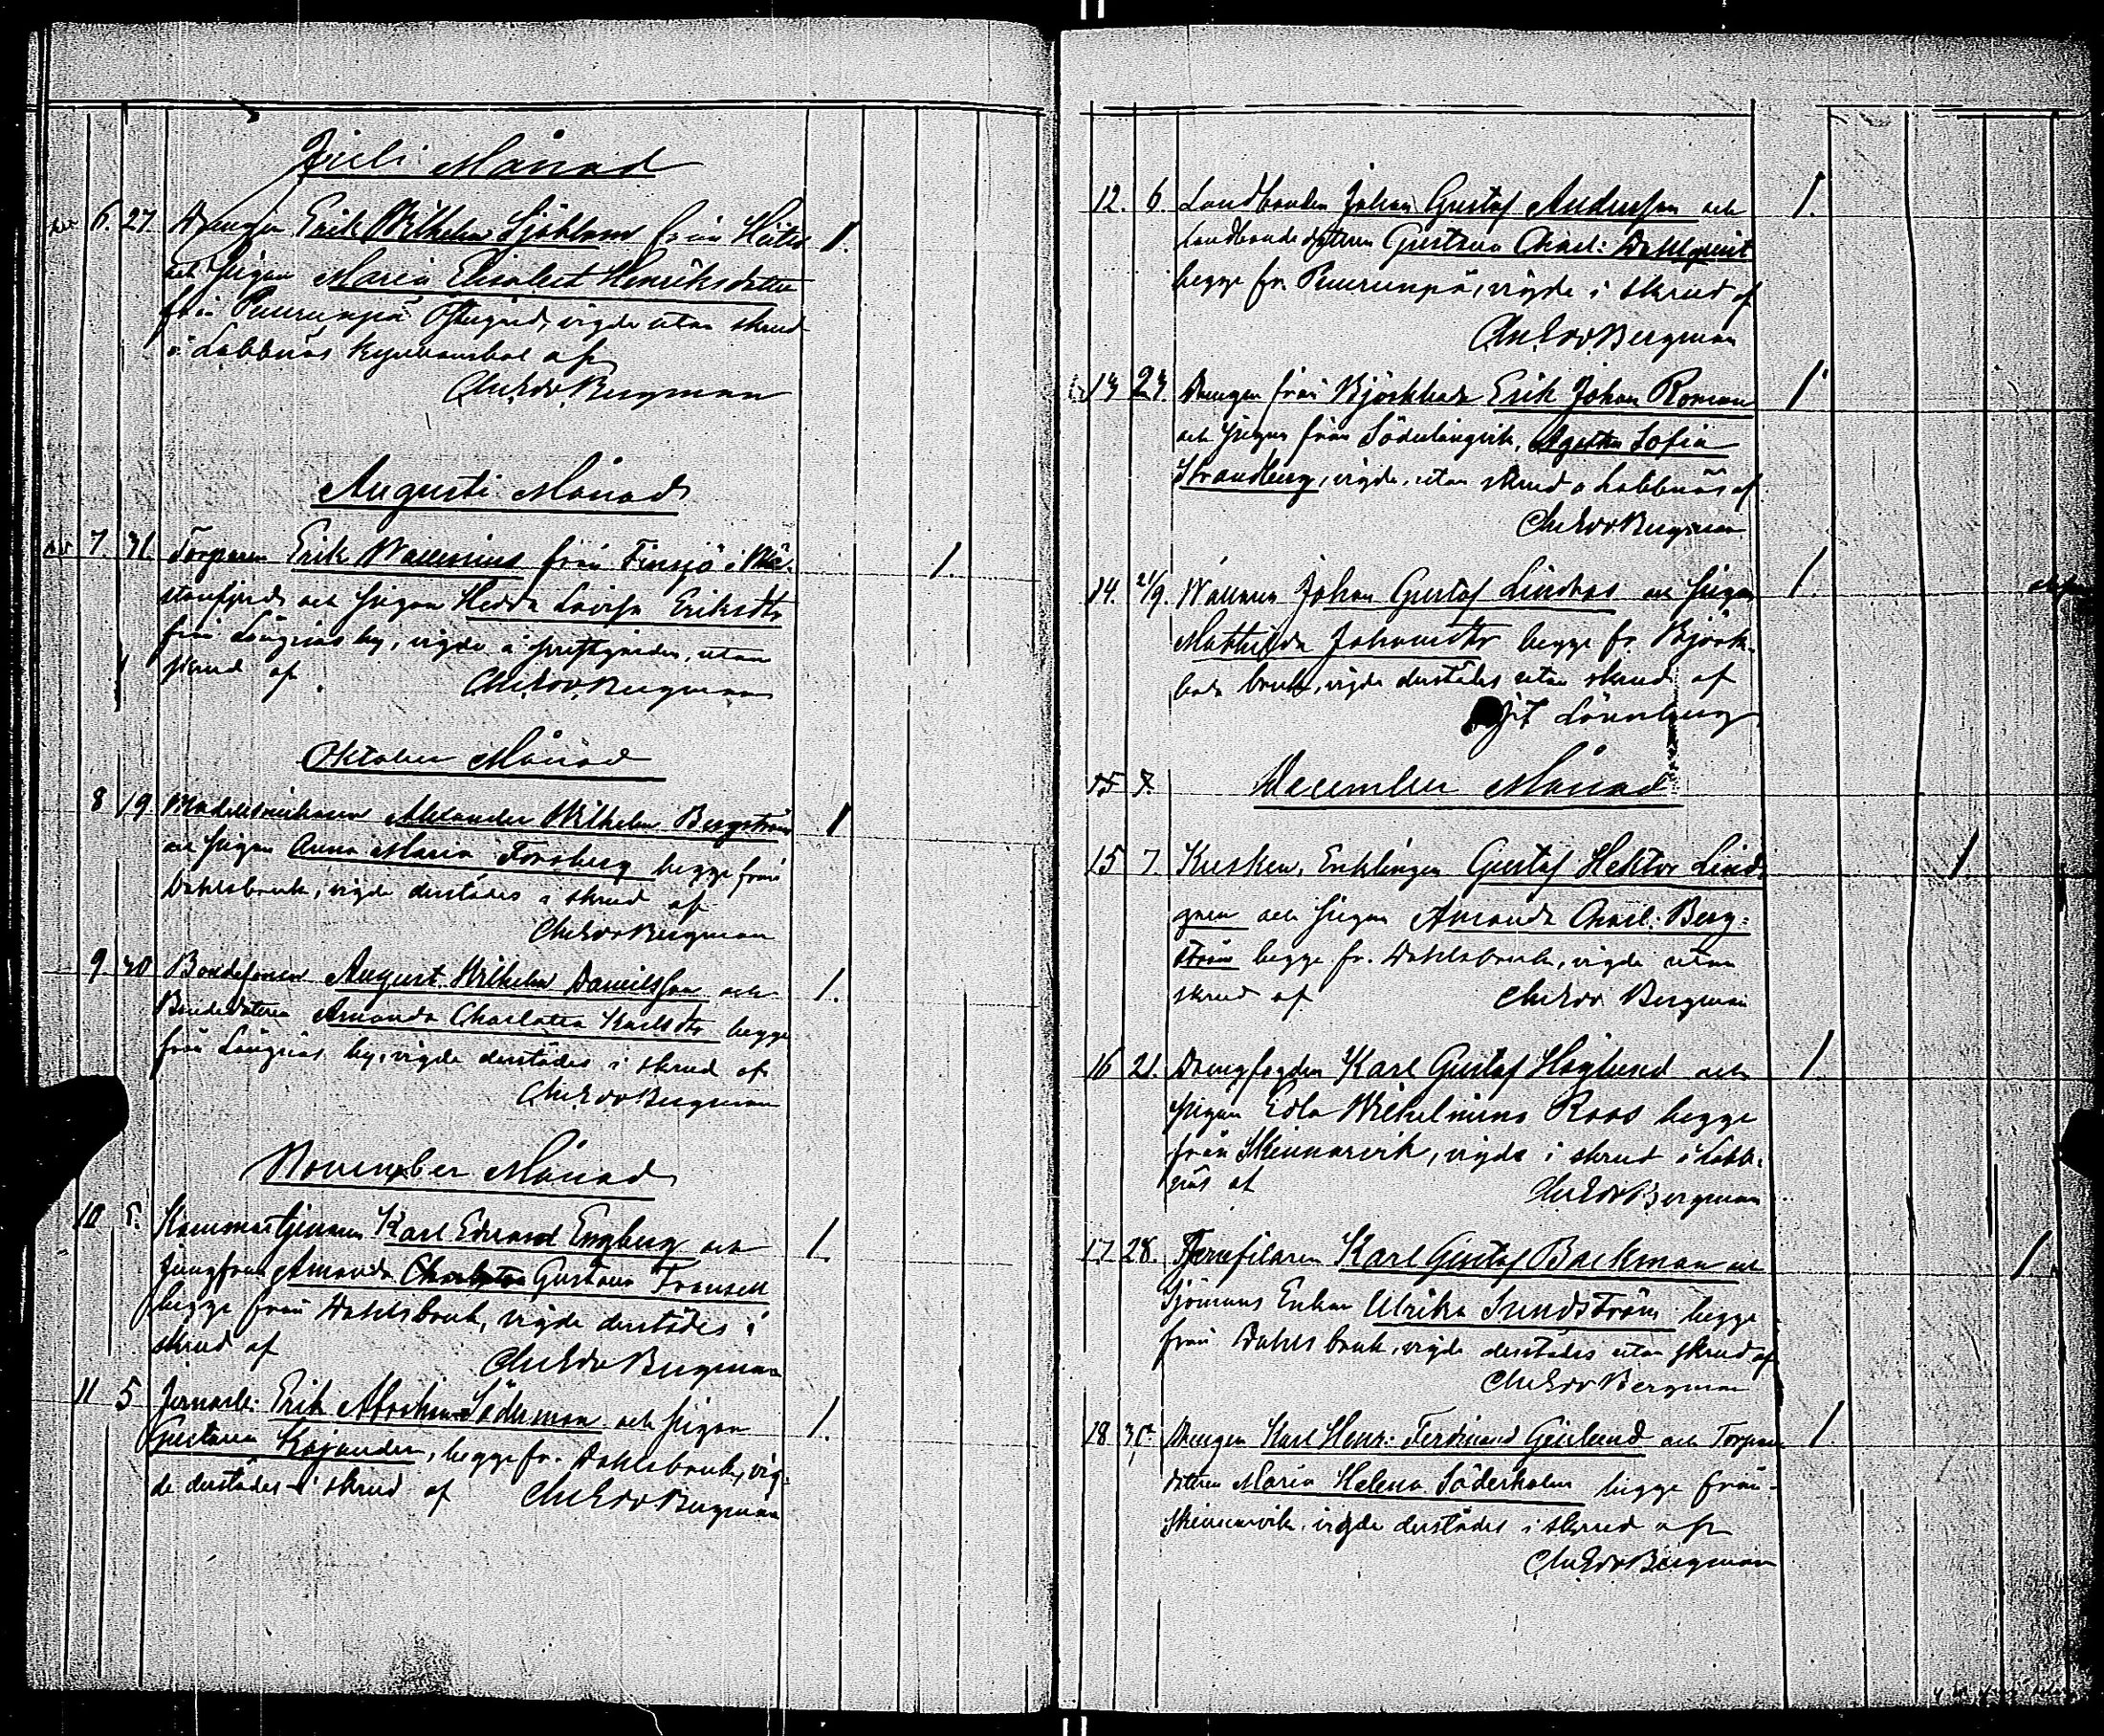 Juli Månad
6. 27 Drengen Erik Wilhelm Sjöblom från Hiitis 1.
och Pigan Maria Elisabet Henriksdotter
från Purunpä Östergård, vigde utan skrud
å Labbnäs af
Chr Edv. Bergman
Augusti Månad
7. 31. Torparen Erik Wallenius från Finsjö i 1.
och Pigan Hedda Lovisa Eriksdtr
från Långnäs by, vigde å prestgården, utan
skrud af Chr Edv. Bergman
Oktober Månad
8 19 Alexander Wilhelm Bergström 1
och Pigan Anna Maria Forsberg begge från
Dahlsbruk, vigde derstädes i skrud af
Chr Edv Bergman
9. 30 Bondesonen August Wilhelm Danielsson och 1.
Bondedottren Amanda Charlotta Karlsdtr begge
från Långnäs by, vigde derstädes i skrud af
Chr Edv Bergman
November Månad
10 5. Karl Edvard Engberg och 1.
Jungfrun Amanda Charlotta Gustava Fransen
begge från Dahlsbruk, vigde derstädes i
skrud af Chr Edv Bergman
11 5 Jernarb: Erik Abraham Söderman och Pigan 1.
Gustava Kajander, begge fr. Dahlsbruk, vig-
de derstädes i skrud af Chr Edv Bergman
12. 6. Landbonden Johan Gustaf Andersson och 1.
Landbondedottren Gustava Charl: Dahlqvist
begge fr. Purunpä, vigde i skrud af
Chr Edv. Bergman
13 23. Drengen från Björkboda Erik Johan Roman 1
och Pigan från Söderlångvik, Agatha Sofia
Strandberg, vigde utan skrud å Labbnäs af
Chr Edv Bergman
14. 21/9. Johan Gustaf Lindroos och Pigan 1.
Mathilda Johansdtr begge fr. Björk-
boda bruk, vigde derstädes utan skrud af
Lönnberg
15 7. December Månad
15 7. Kusken, Enklingen Gustaf Hektor Lind- 1
gren och Pigan Amanda Charl: Berg-
ström begge fr. Dahlsbruk, vigde utan
skrud af Chr Edv Bergman
16 21. Drengfogden Karl Gustaf Höglund och 1.
Pigan Edla Wilhelmina Roos begge
från Skinnarvik, vigde i skrud å Labb-
näs af Chr Edv Bergman
17 28. Karl Gustaf Backman och 1
Sjömans Enkan Ulrika Sundström begge
från Dahlsbruk, vigde derstädes utan skrud af
Chr Edv Bergman
18 Drengen Karl Henr: Ferdinand och Torpare 1.
dottren Maria Helena Söderholm begge från
Skinnarvik, vigde derstädes i skrud af
Chr Edv Bergman